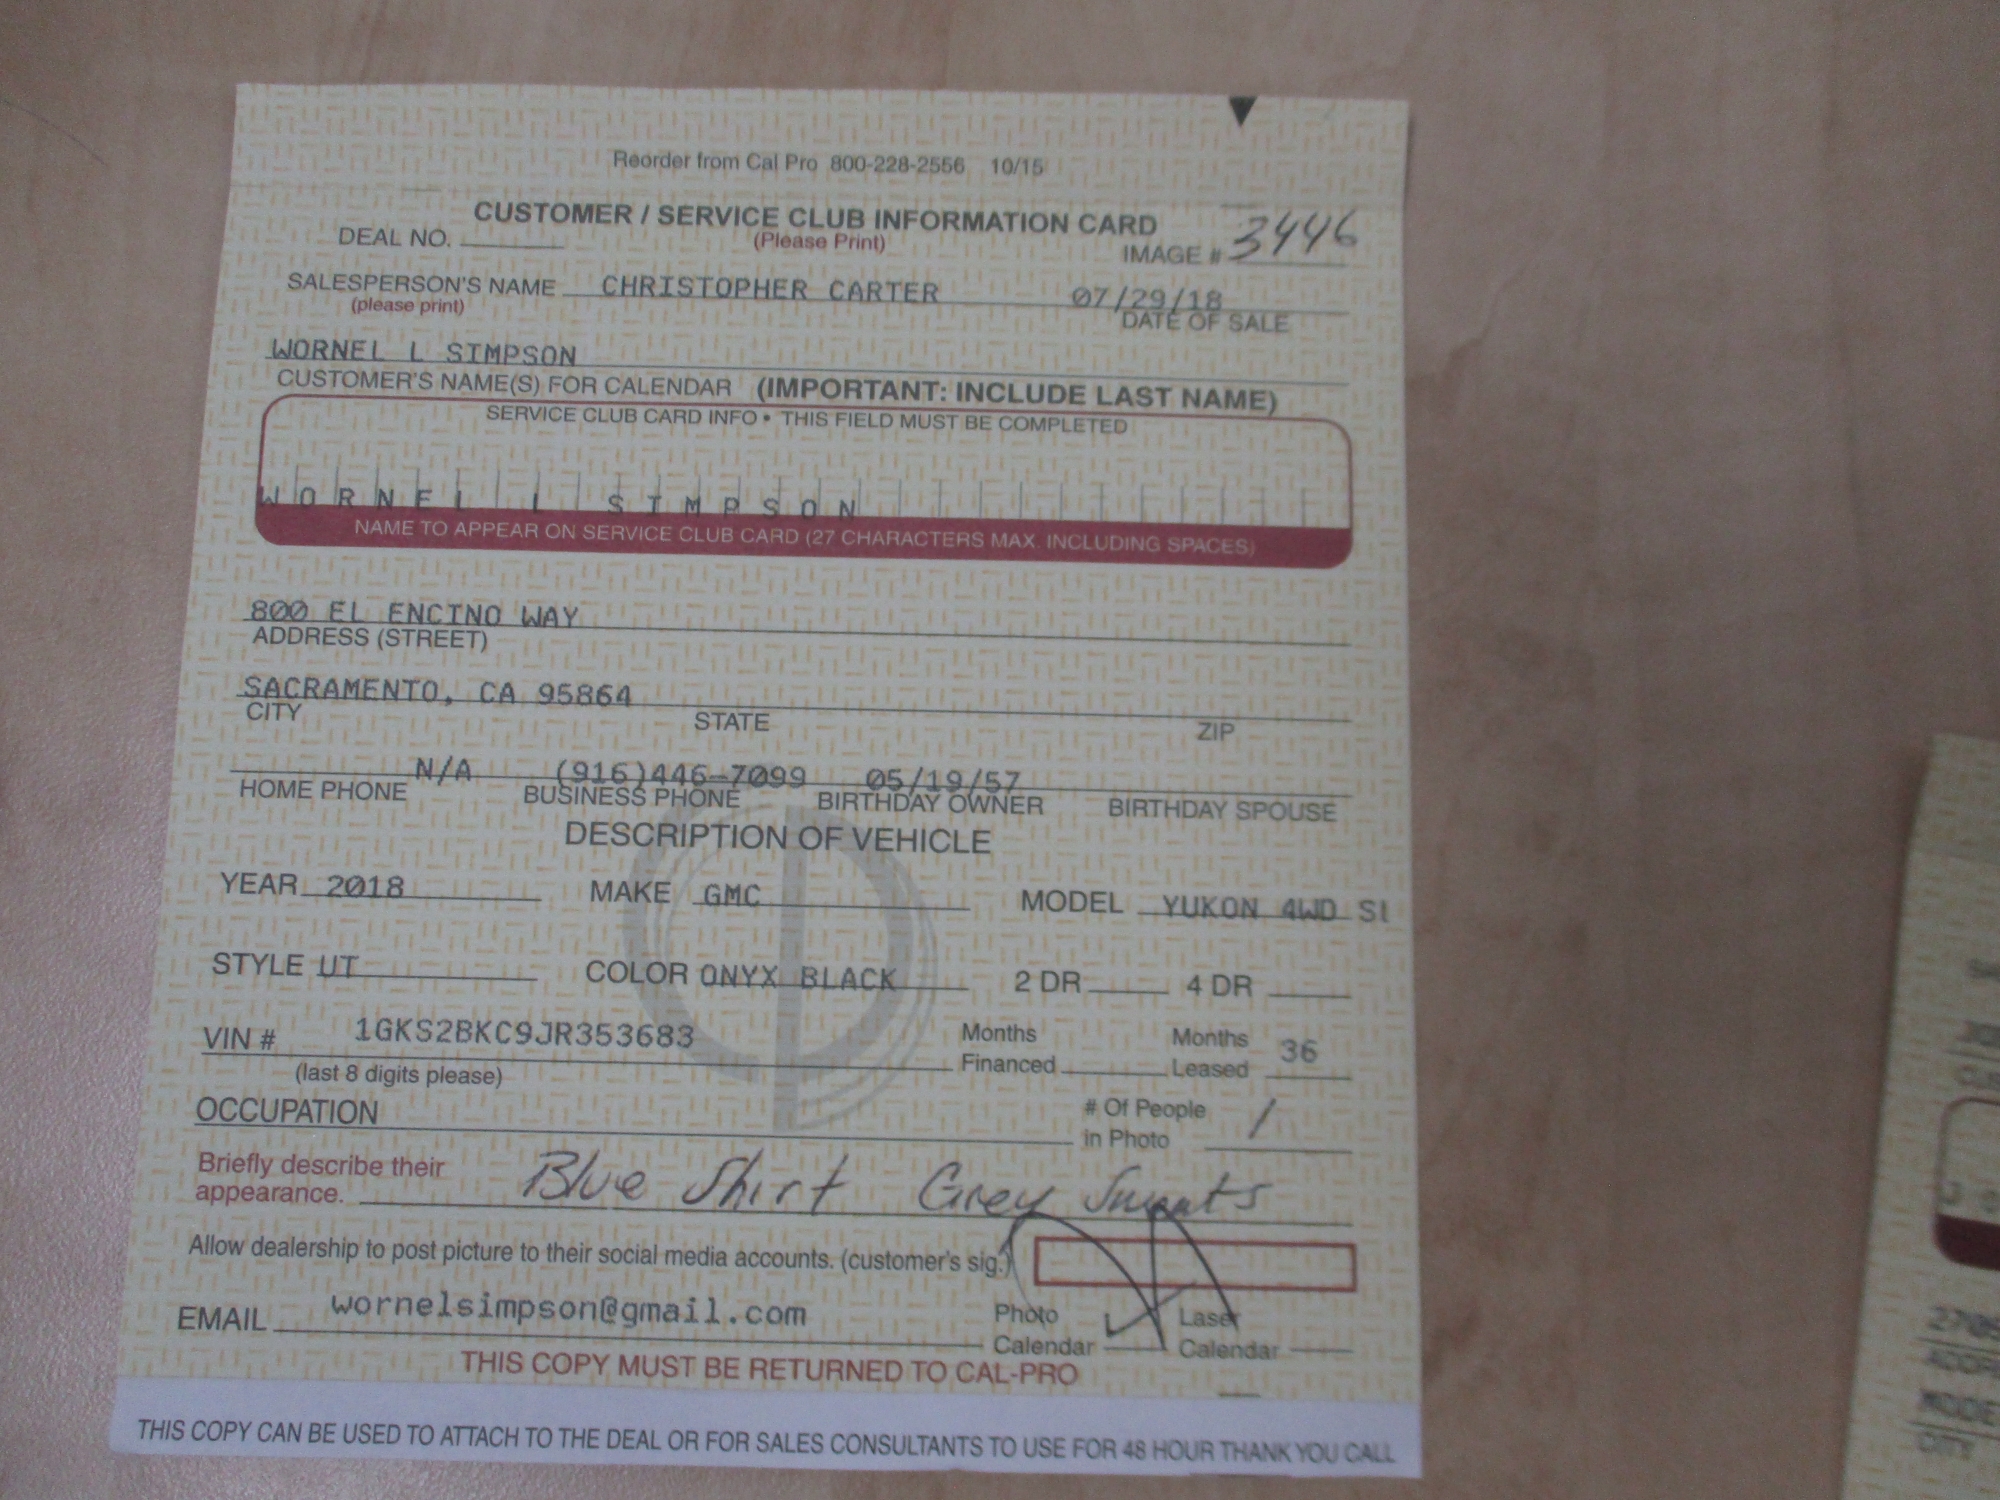 Reorder from Cal Pro 800-228-2556 10/15
CUSTOMER / SERVICE CLUB INFORMATION CARD
DEAL NO. (Please Print) IMAGE # 3446
SALESPERSON'S NAME CHRISTOPHER CARTER 07/29/18
(please print) DATE OF SALE
WORNEL L SIMPSON
CUSTOMER'S NAME(S) FOR CALENDAR (IMPORTANT: INCLUDE LAST NAME)
SERVICE CLUB CARD INFO • THIS FIELD MUST BE COMPLETED
WORNEL L SIMPSON
NAME TO APPEAR ON SERVICE CLUB CARD (27 CHARACTERS MAX. INCLUDING SPACES)
800 EL ENCINO WAY
ADDRESS (STREET)
SACRAMENTO, CA 95864
CITY STATE ZIP
N/A (916)446-7099 05/19/57
HOME PHONE BUSINESS PHONE BIRTHDAY OWNER BIRTHDAY SPOUSE
DESCRIPTION OF VEHICLE
YEAR 2018 MAKE GMC MODEL YUKON 4WD SL
STYLE UT COLOR ONYX BLACK 2 DR 4 DR
VIN # 1GKS2BKC9JR353683 Months Financed Months Leased 36
(last 8 digits please)
OCCUPATION # Of People in Photo 1
Briefly describe their appearance. Blue Shirt Grey Sweats
Allow dealership to post picture to their social media accounts. (customer's sig.)
EMAIL wornelsimpson@gmail.com Photo Calendar ✓ Laser Calendar
THIS COPY MUST BE RETURNED TO CAL-PRO
THIS COPY CAN BE USED TO ATTACH TO THE DEAL OR FOR SALES CONSULTANTS TO USE FOR 48 HOUR THANK YOU CALL